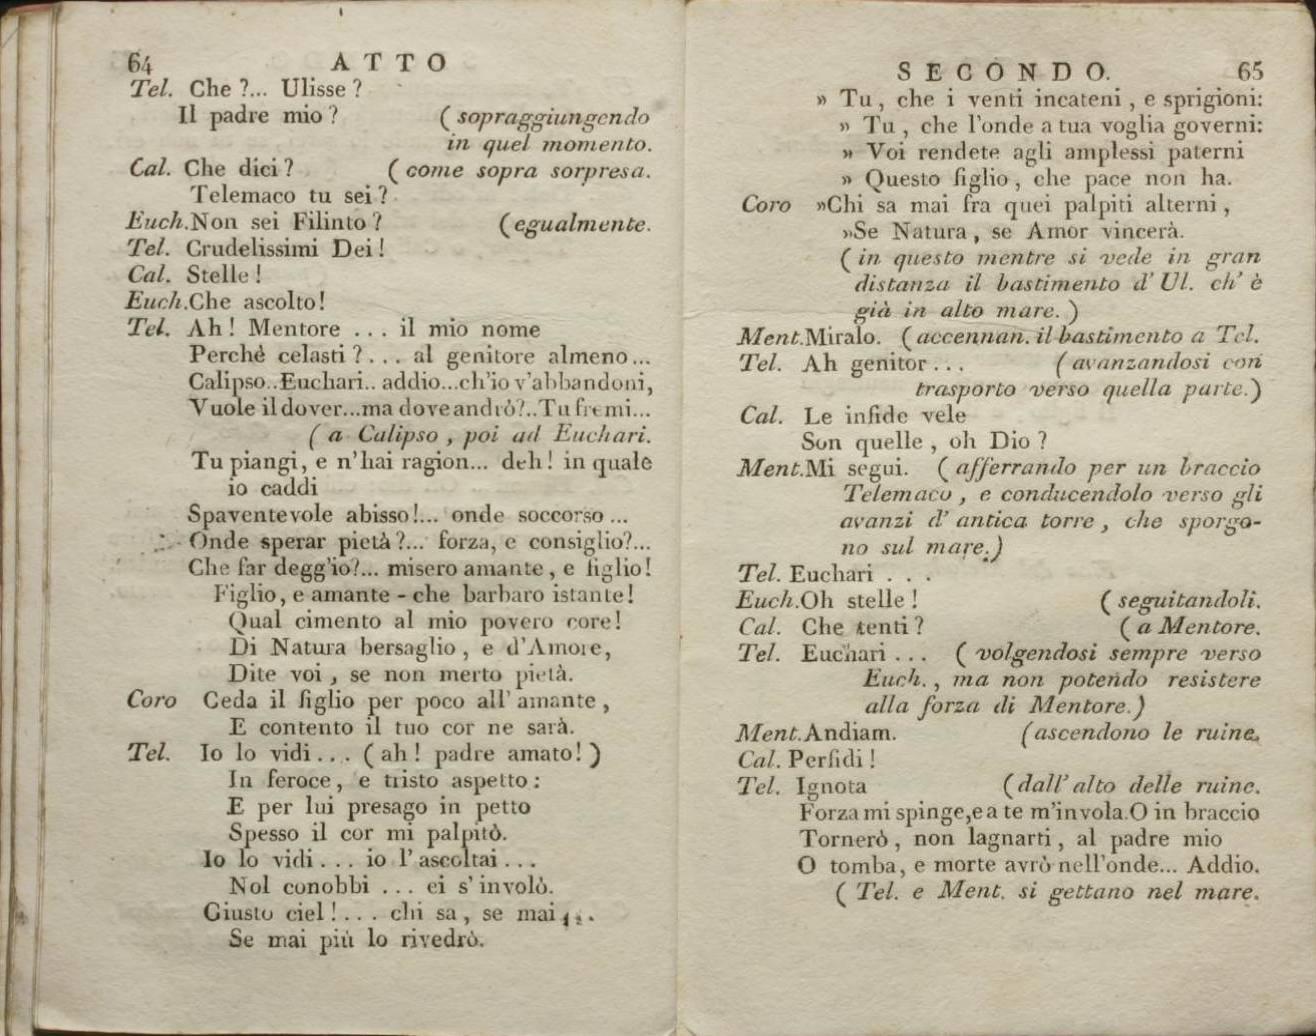 64 ATTO
Tel. Che ?... Ulisse ?
Il padre mio ? ( sopraggiungendo
in quel momento.
Cal. Che dici ? ( come sopra sorpresa.
Telemaco tu sei ?
Euch. Non sei Filinto ? ( egualmente.
Tel. Crudelissimi Dei !
Cal. Stelle !
Euch. Che ascolto !
Tel. Ah ! Mentore . . . il mio nome
Perchè celasti ? . . . al genitore almeno...
Calipso..Euchari.. addio...ch'io v'abbandoni,
Vuole il dover...ma dove andrò?..Tu fremi...
( a Calipso , poi ad Euchari.
Tu piangi, e n'hai ragion... deh! in quale
io caddi
Spaventevole abisso!... onde soccorso ...
Onde sperar pietà ?... forza, e consiglio?...
Che far degg'io?... misero amante , e figlio!
Figlio, e amante - che barbaro istante!
Qual cimento al mio povero core!
Di Natura bersaglio , e d'Amore,
Dite voi , se non merto pietà.
Coro Ceda il figlio per poco all' amante ,
E contento il tuo cor ne sarà.
Tel. Io lo vidi . . . ( ah ! padre amato! )
In feroce , e tristo aspetto :
E per lui presago in petto
Spesso il cor mi palpitò.
Io lo vidi . . . io l' ascoltai . . .
Nol conobbi . . . ei s' involò.
Giusto ciel ! . . . chi sa , se mai . . .
Se mai più lo rivedrò.
SECONDO. 65
» Tu , che i venti incateni , e sprigioni:
» Tu , che l'onde a tua voglia governi:
» Voi rendete agli amplessi paterni
» Questo figlio , che pace non ha.
Coro »Chi sa mai fra quei palpiti alterni ,
»Se Natura , se Amor vincerà.
( in questo mentre si vede in gran
distanza il bastimento d' Ul. ch' è
già in alto mare. )
Ment. Miralo. ( accennan. il bastimento a Tel.
Tel. Ah genitor . . . ( avanzandosi con
trasporto verso quella parte.)
Cal. Le infide vele
Son quelle , oh Dio ?
Ment. Mi segui. ( afferrando per un braccio
Telemaco , e conducendolo verso gli
avanzi d' antica torre , che sporgo-
no sul mare.)
Tel. Euchari . . .
Euch. Oh stelle ! ( seguitandoli.
Cal. Che tenti ? ( a Mentore.
Tel. Euchari . . . ( volgendosi sempre verso
Euch. , ma non potendo resistere
alla forza di Mentore.)
Ment. Andiam. ( ascendono le ruine.
Cal. Perfidi !
Tel. Ignota ( dall' alto delle ruine.
Forza mi spinge,e a te m'invola.O in braccio
Tornerò , non lagnarti , al padre mio
O tomba, e morte avrò nell'onde... Addio.
( Tel. e Ment. si gettano nel mare.